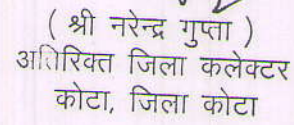 ( श्री नरेन्द्र गुप्ता )
अतिरिक्त जिला कलेक्टर
कोटा, जिला कोटा